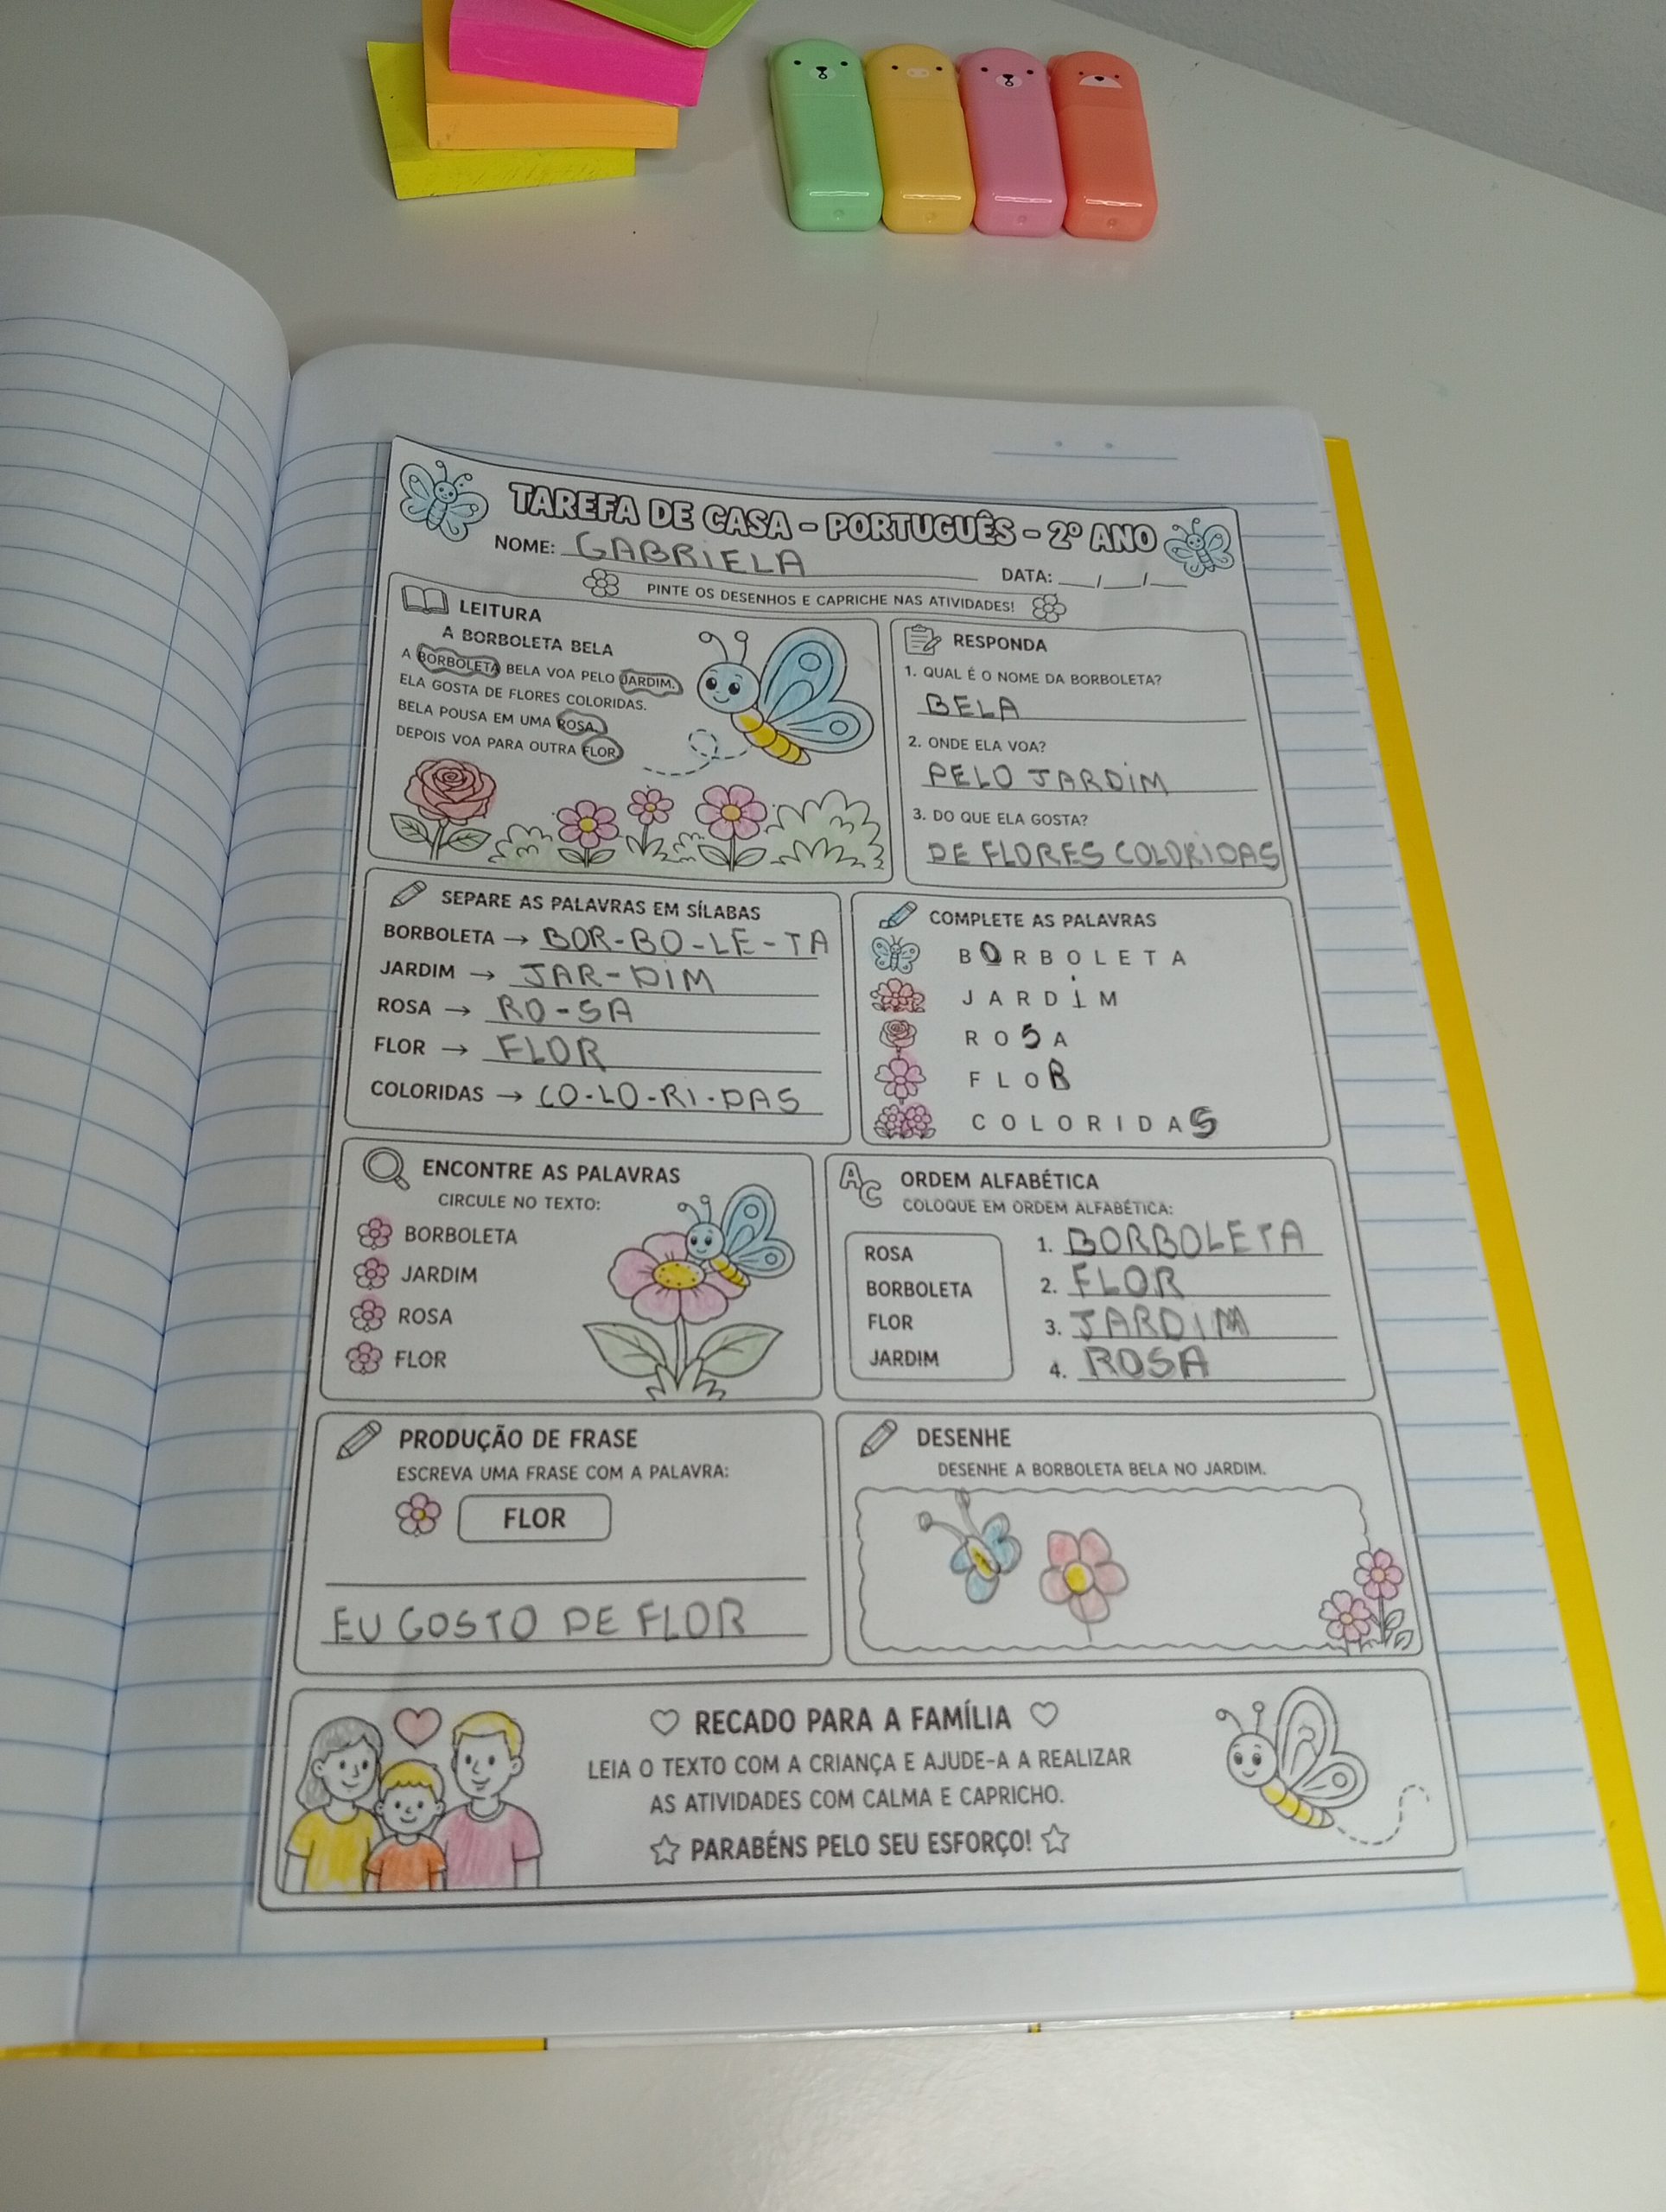 TAREFA DE CASA - PORTUGUÊS - 2º ANO
NOME: GABRIELA
DATA: ___/___/___
PINTE OS DESENHOS E CAPRICHE NAS ATIVIDADES!
LEITURA
A BORBOLETA BELA
A BORBOLETA BELA VOA PELO JARDIM.
ELA GOSTA DE FLORES COLORIDAS.
BELA POUSA EM UMA ROSA.
DEPOIS VOA PARA OUTRA FLOR.
RESPONDA
1. QUAL É O NOME DA BORBOLETA?
BELA
2. ONDE ELA VOA?
PELO JARDIM
3. DO QUE ELA GOSTA?
DE FLORES COLORIDAS
SEPARE AS PALAVRAS EM SÍLABAS
BORBOLETA → BOR-BO-LE-TA
JARDIM → JAR-DIM
ROSA → RO-SA
FLOR → FLOR
COLORIDAS → CO-LO-RI-DAS
COMPLETE AS PALAVRAS
B O R B O L E T A
J A R D I M
R O S A
F L O R
C O L O R I D A S
ENCONTRE AS PALAVRAS
CIRCULE NO TEXTO:
BORBOLETA
JARDIM
ROSA
FLOR
AC ORDEM ALFABÉTICA
COLOQUE EM ORDEM ALFABÉTICA:
ROSA
BORBOLETA
FLOR
JARDIM
1. BORBOLETA
2. FLOR
3. JARDIM
4. ROSA
PRODUÇÃO DE FRASE
ESCREVA UMA FRASE COM A PALAVRA:
FLOR
EU GOSTO DE FLOR
DESENHE
DESENHE A BORBOLETA BELA NO JARDIM.
RECADO PARA A FAMÍLIA
LEIA O TEXTO COM A CRIANÇA E AJUDE-A A REALIZAR
AS ATIVIDADES COM CALMA E CAPRICHO.
PARABÉNS PELO SEU ESFORÇO!